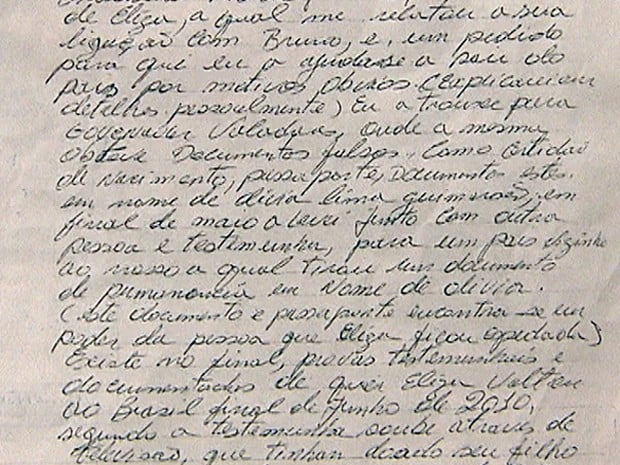 de Eliza, a qual me relatou a sua
ligação com Bruno, e, um pedido
para que eu a ajudasse a sair do
país por motivos obvios. (Explicarei em
detelhes pessoalmente) Eu a trouxe para
Governador Valadares, onde a mesma
obteve Documentos falsos, Como Certidão
de Nascimento, passaporte, Documentos estes
em nome de Olívia Lima Guimarães, em
final de maio a levei junto com outra
pessoa e testemunha, para um país vizinho
ao nosso a qual tirou um documento
de permanencia em Nome de Olívia.
(este documento e passaporte encontra-se em
poder da pessoa que Eliza ficou ospedada)
Existe no final, provas testemunhais e
documentadas de que Eliza Voltou
ao Brasil final de Junho de 2010,
segundo a testemunha soube através de
televisão, que tinham doado seu filho